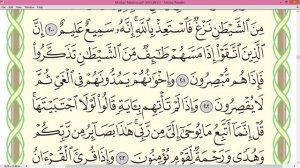 Mushaf Madinah.pdf (SECURED) - Adobe Reader
مِنَ ٱلشَّيْطَٰنِ نَزْغٌ فَٱسْتَعِذْ بِٱللَّهِ إِنَّهُۥ سَمِيعٌ عَلِيمٌ ٢٠٠
إِنَّ ٱلَّذِينَ ٱتَّقَوْا۟ إِذَا مَسَّهُمْ طَٰٓئِفٌ مِّنَ ٱلشَّيْطَٰنِ تَذَكَّرُوا۟
فَإِذَا هُم مُّبْصِرُونَ ٢٠١ وَإِخْوَٰنُهُمْ يَمُدُّونَهُمْ فِى ٱلْغَىِّ ثُمَّ
لَا يُقْصِرُونَ ٢٠٢ وَإِذَا لَمْ تَأْتِهِم بِـَٔايَةٍ قَالُوا۟ لَوْلَا ٱجْتَبَيْتَهَا
قُلْ إِنَّمَآ أَتَّبِعُ مَا يُوحَىٰٓ إِلَىَّ مِن رَّبِّى هَٰذَا بَصَآئِرُ مِن رَّبِّكُمْ
وَهُدًى وَرَحْمَةٌ لِّقَوْمٍ يُؤْمِنُونَ ٢٠٣ وَإِذَا قُرِئَ ٱلْقُرْءَانُ